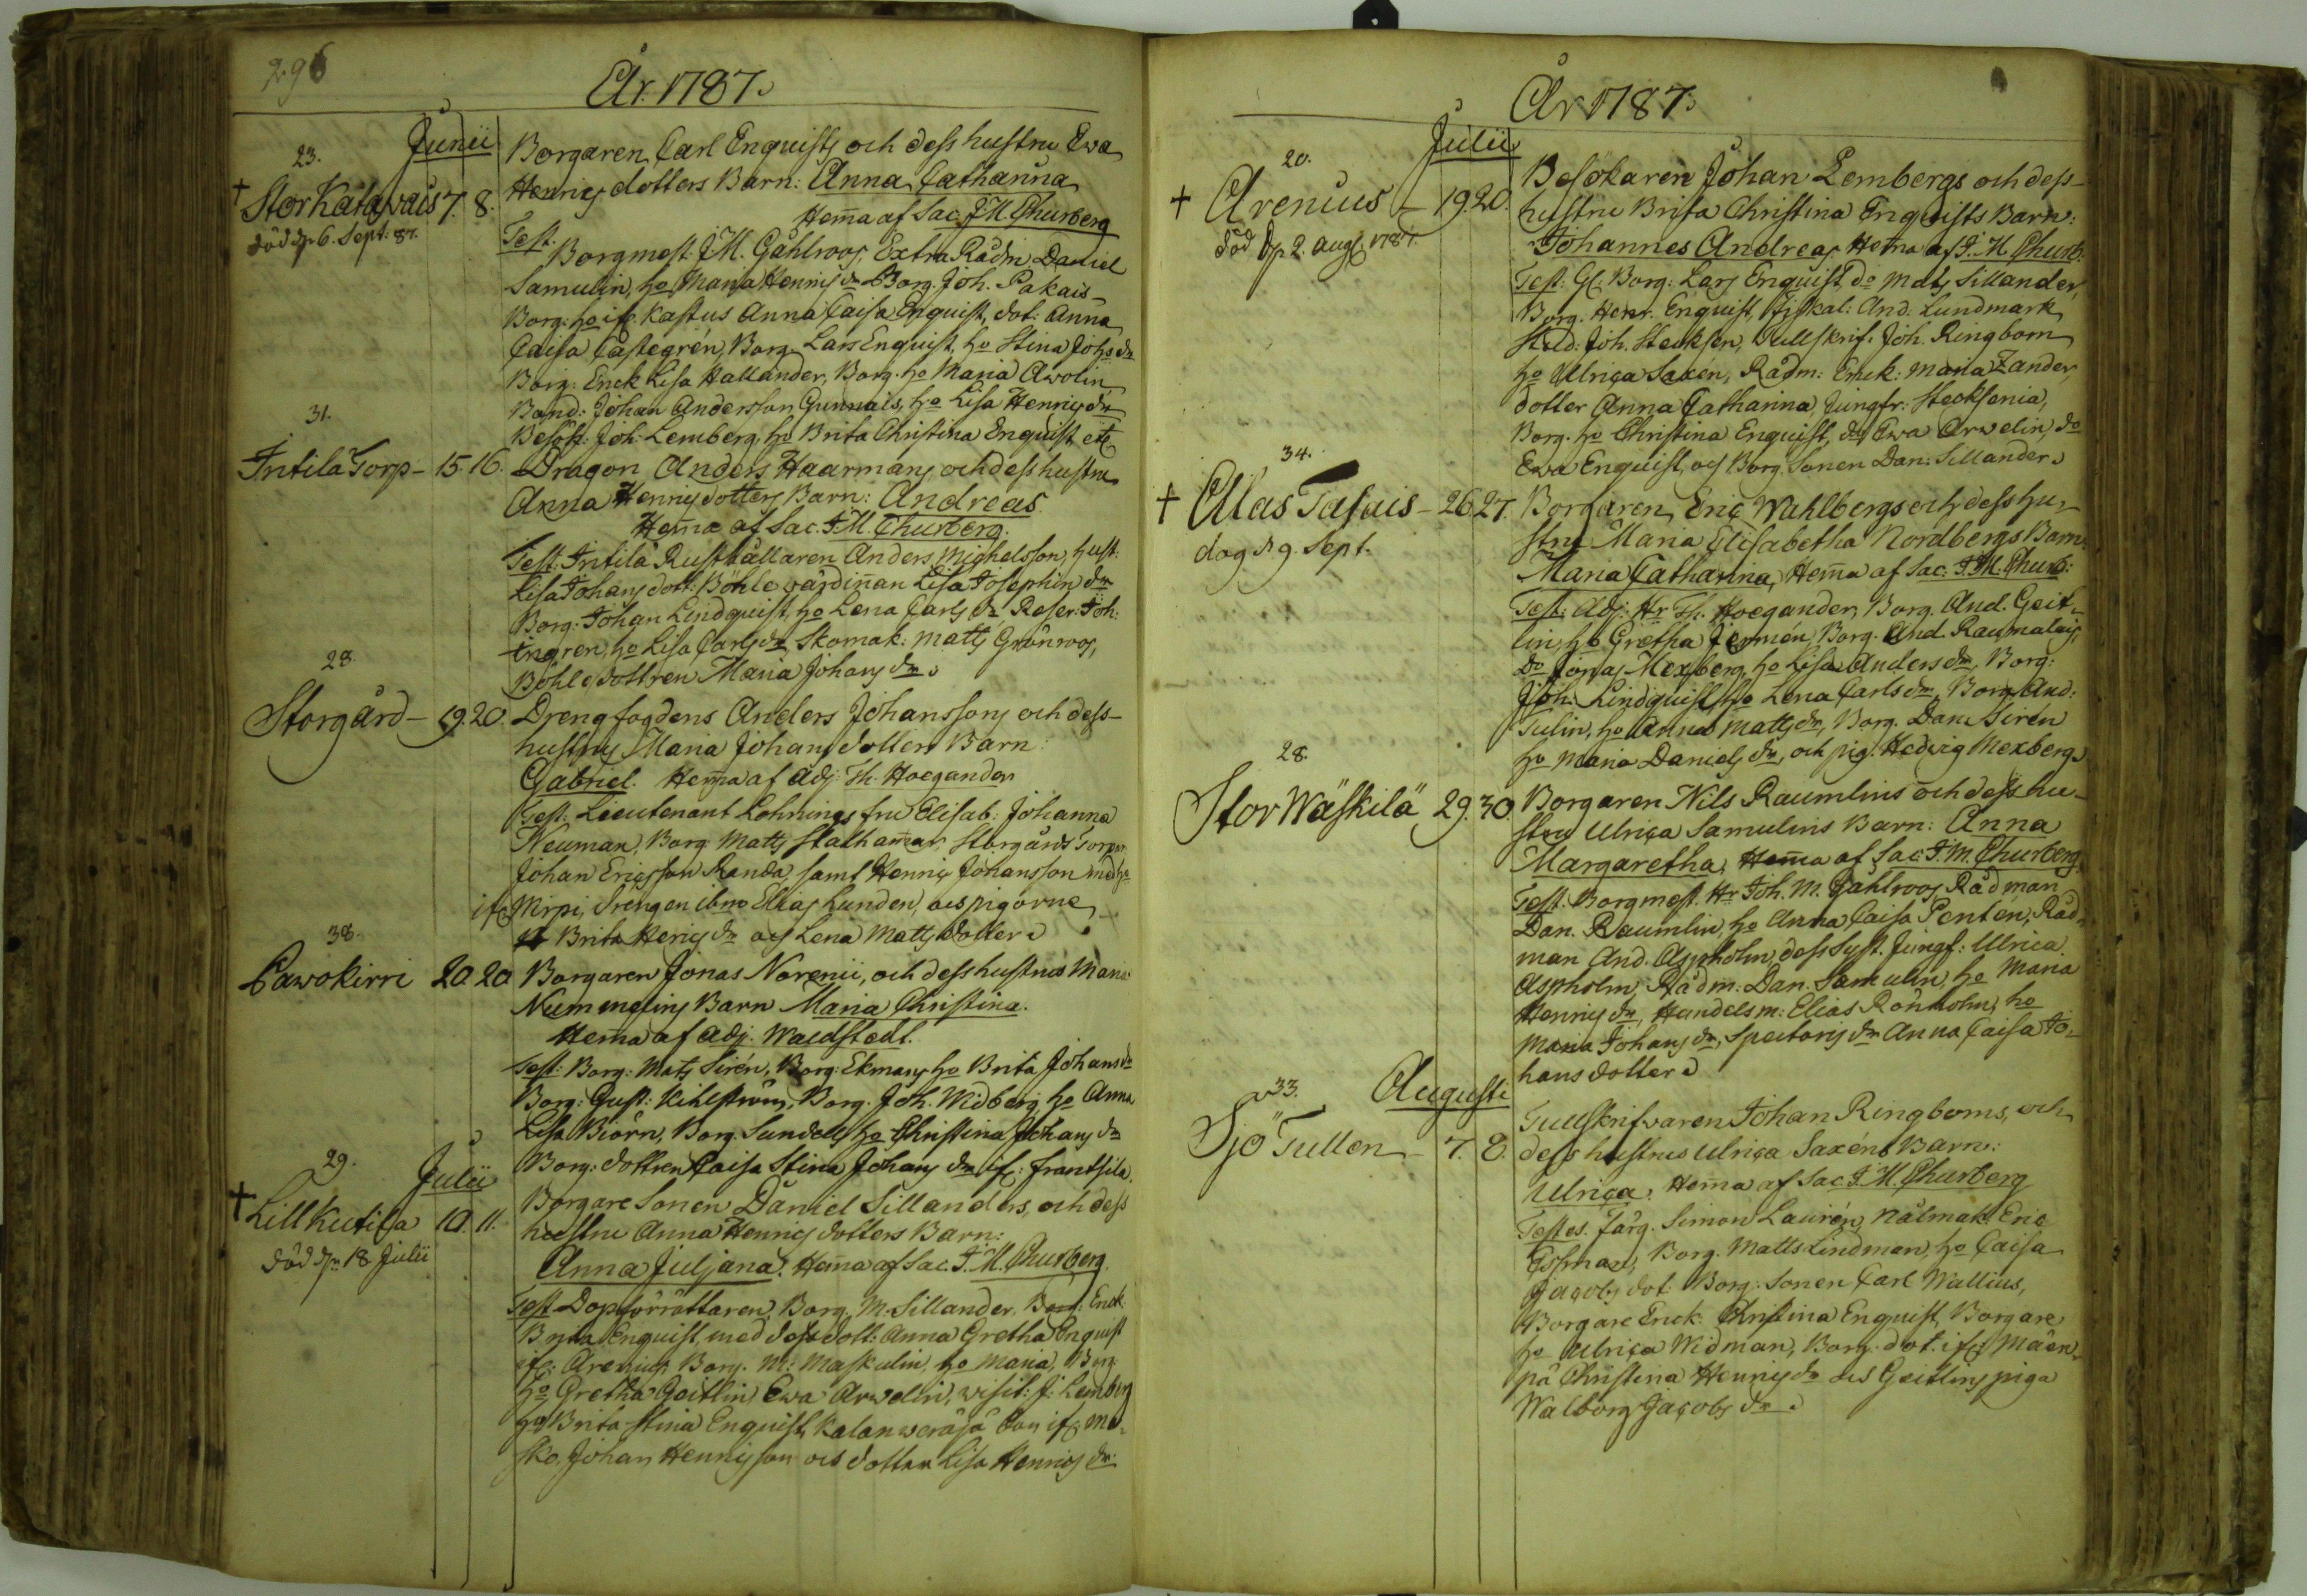 296
År. 1787.
Junii
23.
† Stor Katavais 7. 8.
död d. 6. Sept. 87.
Borgaren Carl Enquists och dess hustru Ewa
Henrics dotters Barn: Anna Catharina
Hem̄a af Sac. J M Churberg
Test. Borgmest: J.M. Gåhlroos, Extra Rådm Daniel
Samulin, ho Maria Henrics dr Borg. Joh. Pakais
Borg: ho if Kastus Anna Caisa Enquist, dot: Anna
Caisa Castegrén, Borg. Lars Enquist, ho Stina Johs dr
Borg: Enck Lisa Hallander, Borg. ho Maria Awolin
Band: Johan Andersson Gunnais, ho Lisa Henrics dr
Besök: Joh: Lemberg, ho Brita Christina Enquist etc
31.
Intila Torp – 15 16.
Dragon Anders Haarmans och dess hustru
Anna Henrics dotters Barn: Andreas
Hem̄a af Sac. J.M. Churberg.
Test: Intila Rusthållaren Anders Mighelsson, hust:
Lisa Johans dott: Böhle värdin̄an Lisa Josephin dr
Borg: Johan Lindquist, ho Lena Carls dr, Reser: Joh:
Ingren, ho Lisa Carls dr, Skomak: Matts Grönroos,
Böhle dottren Maria Johans dr.
28.
Storgård – 19. 20.
Drengfogdens Anders Johanssons och dess
hustrus Maria Johans dotters Barn:
Gabriel. Hem̄a af Adj: Th. Hoegander
Test: Lieutenant Lohnings fru Elisab: Johanna
Neuman, Borg Matts Stalham̄ar, Storgårds Torpar
Johan Ericsson Randa, samt Henric Johansson med ho
if Mirpi, Drengen ibm Elias Lunden, och pigorne
Brita Henrics dr och Lena Matts dotter
38.
Pawokirri 20 20
Borgaren Jonas Norenii, och dess hustrus Maria
Nummelins Barn Maria Christina.
Hem̄a af Adj. Waldstedt.
Test: Borg: Mats Sirén, Borg: Ekmans ho Brita Johans dr
Borg: Gust: Kihlström, Borg. Joh. Widberg ho Anna
Lisa Biörn, Borg Sundells ho Christina Johans dr
Borg: dottren Caisa Stina Johans dr if: Frantsila.
29.
Julii
† Lill Kutila 10. 11.
död d. 18 Julii
Borgare Sonen Daniel Sillanders, och dess
hustru Anna Henrics dotters Barn:
Anna Juljana. Hem̄a af Sac. J. M. Churberg.
Test Dopförrättaren, Borg. M. Sillander, Borg: Enck:
Brita Enquist, med dess dott: Anna Gretha Enquist
if: Arenius Borg. M: Maskulin, ho Maria, Borg:
ho Gretha Geitlin, Ewa Arwelin, visit: J: Lemberg
ho Brita Stina Enquist,
Johan Henricsson och dotter Lisa Henrics dr.
År 1787.
Julii
20.
† Arenius – 19. 20.
död d. 2. Aug 1787.
Besökaren Johan Lembergs och dess
hustru Brita Christina Enquists Barn:
Johannes Andreas, Hem̄a af J. M. Churb.
Test: Gl. Borg: Lars Enquist, do Mats Sillander,
Borg. Henr. Enquist, Fiskal: And: Lundmark,
Stud: Joh. Stecksen, Tullskrif: Joh. Ringbom
ho Ulrica Saxén, Rådm: Enck: Maria Zander,
dotter Anna Catharina, Jungfr: Stecksenia,
Borg. ho Christina Enquist, do Ewa Arwelin, do
Ewa Enquist, och Borg. Sonen Dan: Sillander.
34.
† Alas Tasais – 26 27.
dog d. 9. Sept.
Borgaren Eric Wahlbergs och dess hu-
stru Maria Elisabetha Nordbergs Barn
Maria Catharina, Hem̄a af Sac: J. M. Churb:
Test: Adj: Hr Th. Hoegander, Borg. And. Geit-
lin, ho Gretha Jermén, Borg. And. Raumalais,
do Jonas Mexberg, ho Lisa Anders dr, Borg:
Joh: Lindquist, ho Lena Carls dr, Borg. And:
Tulin, ho Anna Matts dr, Borg. Dan: Sirén
ho Maria Daniels dr, och pig. Hedvig Mexberg.
28.
Stor Wäskilä 29. 30
Borgaren Nils Raumlins och dess hu-
stru Ulrica Samulins Barn: Anna
Margaretha, Hem̄a af Sac: J. M. Churberg.
Test: Borgmest. Hr Joh. M. Gåhlroos, Rådman
Dan. Raumlin, ho Anna Caisa Pentén, Råd-
man And. Aspholm, dess Syst. Jungf: Ulrica
Aspholm, Rådm: Dan. Samulin, ho Maria
Henrics dr, Handelsm: Elias Rönholm, ho
Maria Johans dr, Spectoris dr Anna Caisa Jo-
hans dotter
33.
Augusti
Sjö Tullen – 7. 8.
Tullskrifvaren Johan Ringboms, och
dess hustrus Ulrica Saxéns Barn:
Ulrica. Hem̄a af Sac. J. M. Churberg
Testes. Färg. Simon Laurén, Nålmak: Eric
Essman, Borg. Matts Lindman, ho Caisa
Jacobs dot: Borg: Sonen Carl Wallius,
Borgare Enck: Christina Enquist, Borgare
ho Ulrica Widman, Borg. dot. if: Mäen-
pä Christina Henrics dr och Geitlins piga
Walborg Jacobs dr.